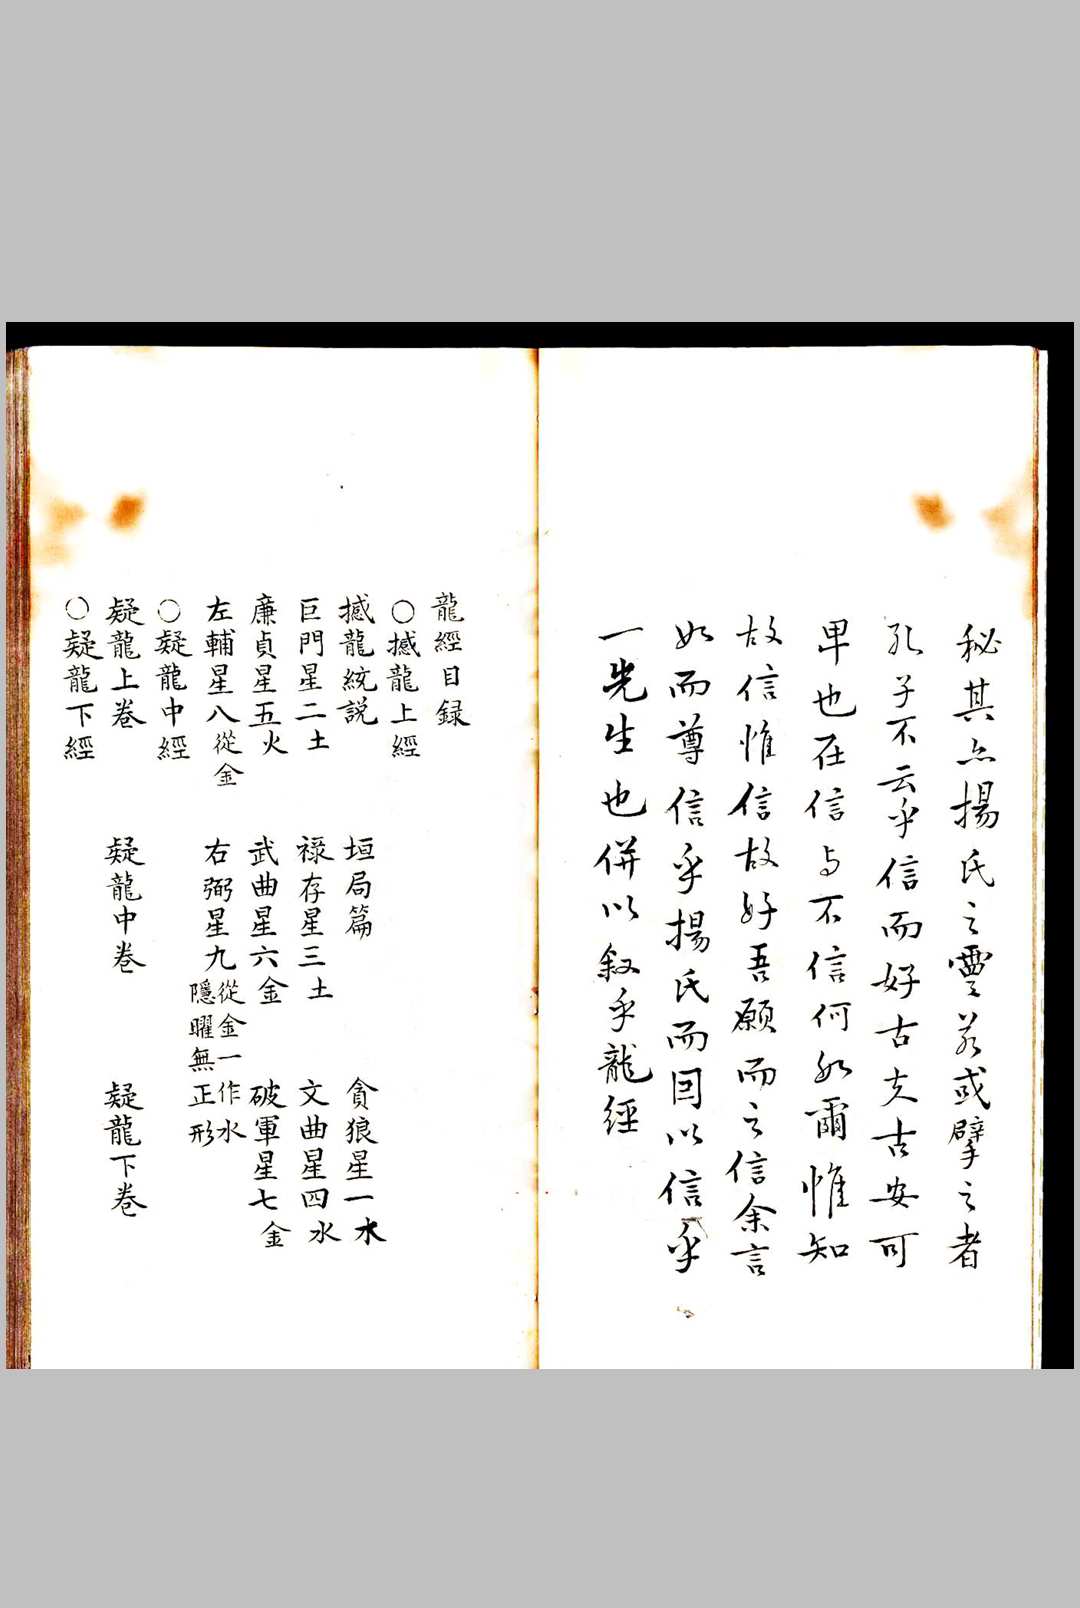 秘其亦揚氏之靈若或擘之者
孔子不云乎信而好古夫古安可
卑也在信与不信何如爾惟知
故信惟信故好吾願而之信余言
如而尊信乎揚氏而因以信乎
一先生也併以叙乎龍經
龍經目録
○撼龍上經
撼龍統説 垣局篇 貪狼星一水
巨門星二土 禄存星三土 文曲星四水
廉貞星五火 武曲星六金 破軍星七金
左輔星八從金 右弼星九從金一作水隱曜無正形
○疑龍中經
疑龍上巻 疑龍中巻 疑龍下巻
○疑龍下經